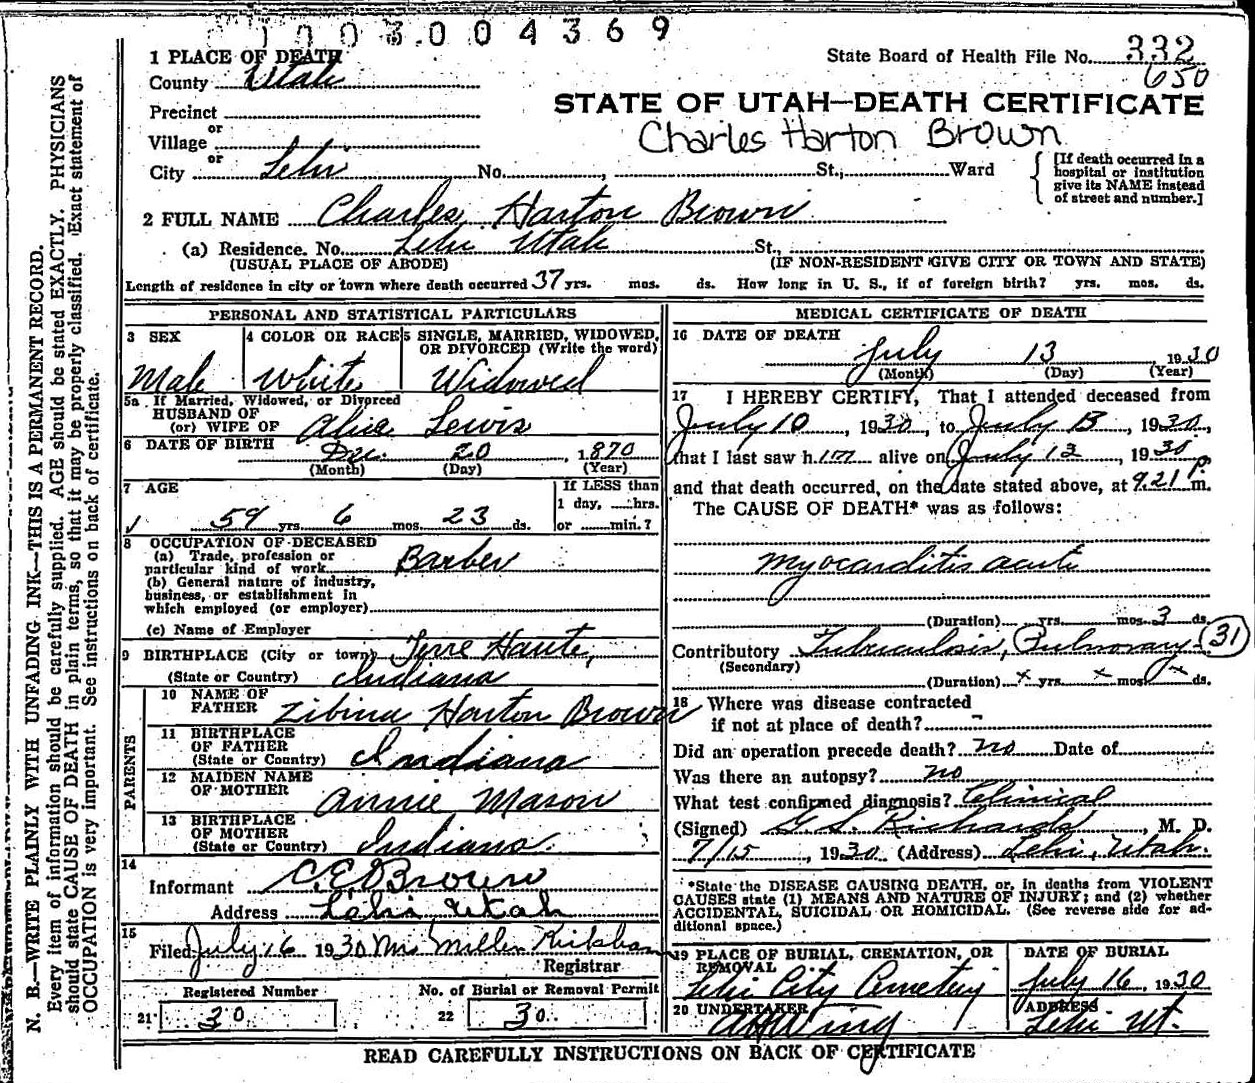 003004369
1 PLACE OF DEATH
County Utah
State Board of Health File No. 332
650
STATE OF UTAH—DEATH CERTIFICATE
Charles Harton Brown
Precinct
or
Village
or
City Lehi No. , St., Ward
[If death occurred in a hospital or institution give its NAME instead of street and number.]
2 FULL NAME Charles Harton Brown
(a) Residence. No. Lehi Utah St.,
(USUAL PLACE OF ABODE) (IF NON-RESIDENT GIVE CITY OR TOWN AND STATE)
Length of residence in city or town where death occurred 37 yrs. mos. ds. How long in U. S., if of foreign birth? yrs. mos. ds.
PERSONAL AND STATISTICAL PARTICULARS
3 SEX
Male
4 COLOR OR RACE
White
5 SINGLE, MARRIED, WIDOWED, OR DIVORCED (Write the word)
Widowed
5a If Married, Widowed, or Divorced
HUSBAND OF
(or) WIFE OF Alice Lewis
6 DATE OF BIRTH Dec. 20, 1870
(Month) (Day) (Year)
7 AGE
59 yrs. 6 mos. 23 ds.
If LESS than
1 day, hrs.
or min.?
8 OCCUPATION OF DECEASED
(a) Trade, profession or
particular kind of work Barber
(b) General nature of industry,
business, or establishment in
which employed (or employer)
(c) Name of Employer
9 BIRTHPLACE (City or town) Terre Haute,
(State or Country) Indiana
PARENTS
10 NAME OF
FATHER Zibina Harton Brown
11 BIRTHPLACE
OF FATHER
(State or Country) Indiana
12 MAIDEN NAME
OF MOTHER Annie Mason
13 BIRTHPLACE
OF MOTHER
(State or Country) Indiana.
14
Informant C.E. Brown
Address Lehi Utah
15
Filed July 16 1930 Mrs Kirkham
Registrar
Registered Number
21 30
No. of Burial or Removal Permit
22 30
MEDICAL CERTIFICATE OF DEATH
16 DATE OF DEATH
July 13 1930
(Month) (Day) (Year)
17 I HEREBY CERTIFY, That I attended deceased from
July 10, 1930, to July 13, 1930,
that I last saw him alive on July 13, 1930
and that death occurred, on the date stated above, at 9.21 P. m.
The CAUSE OF DEATH* was as follows:
myocarditis acute
(Duration) yrs. mos. 3 ds.
Contributory Tuberculosis, Pulmonary 31
(Secondary)
(Duration) x yrs. x mos. ds.
18 Where was disease contracted
if not at place of death? -
Did an operation precede death? no Date of
Was there an autopsy? no
What test confirmed diagnosis? Clinical
(Signed) G. S. Richards, M. D.
7/15, 1930 (Address) Lehi, Utah.
*State the DISEASE CAUSING DEATH, or, in deaths from VIOLENT
CAUSES state (1) MEANS AND NATURE OF INJURY; and (2) whether
ACCIDENTAL, SUICIDAL OR HOMICIDAL. (See reverse side for ad-
ditional space.)
19 PLACE OF BURIAL, CREMATION, OR
REMOVAL
Lehi City Cemetery
DATE OF BURIAL
July 16, 1930
20 UNDERTAKER
Wing
ADDRESS
Lehi Ut.
READ CAREFULLY INSTRUCTIONS ON BACK OF CERTIFICATE
N. B.—WRITE PLAINLY WITH UNFADING INK—THIS IS A PERMANENT RECORD.
Every item of information should be carefully supplied. AGE should be stated EXACTLY. PHYSICIANS
should state CAUSE OF DEATH in plain terms, so that it may be properly classified. Exact statement of
OCCUPATION is very important. See instructions on back of certificate.